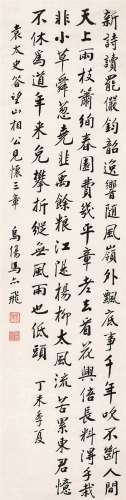 新詩讀罷儼鈞韶逸響随風嶺外飄底事千年吹不斷人間
天上兩枝簫絢春園費幾平章老去看花興倍長料得手栽
非小草舜葱堯韭禹餘粮江堤楊柳太風流苦累東君憶
不休為道年来免攀折縱無風雨也低頭 丁未季夏
袁太史答望山相公見懷三章 烏傷馬六飛